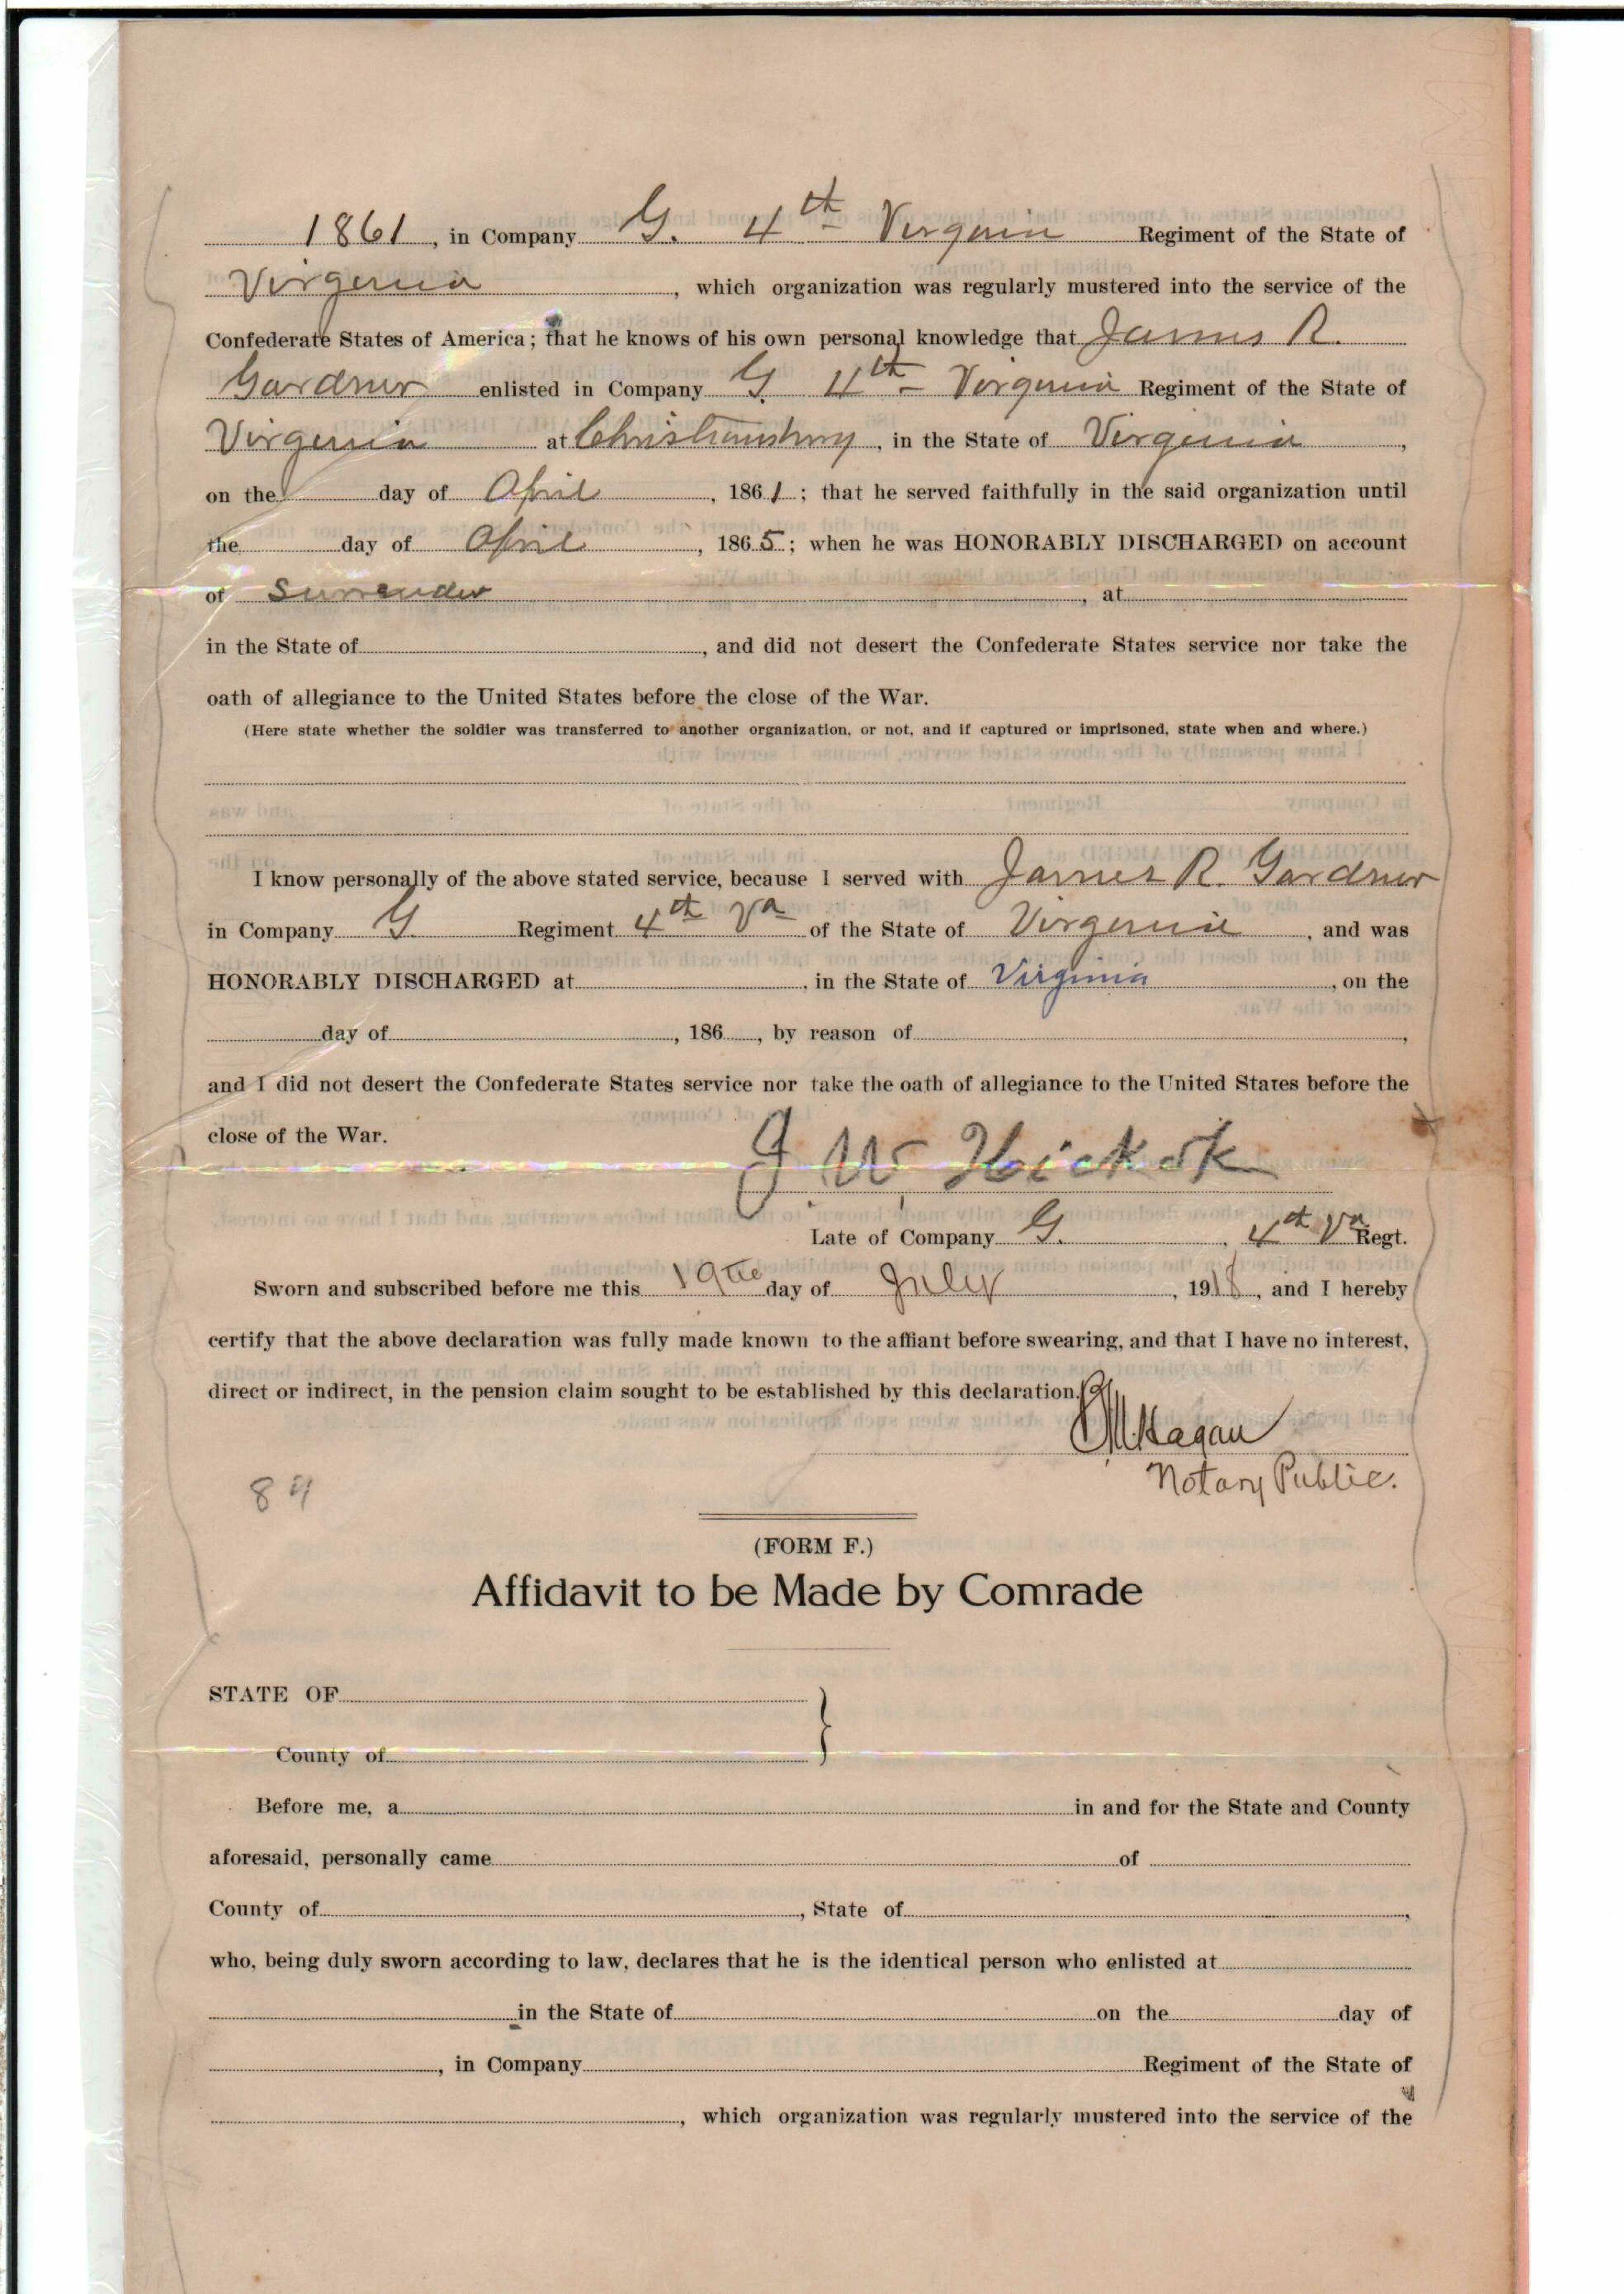 1861, in Company G. 4th Vergain Regiment of the State of
Virgenia, which organization was regularly mustered into the service of the
Confederate States of America; that he knows of his own personal knowledge that James R.
Gardner enlisted in Company G 4th Vergenia Regiment of the State of
Virgenia at Christiansburg, in the State of Vergenia,
on the day of April, 1861; that he served faithfully in the said organization until
the day of April, 1865; when he was HONORABLY DISCHARGED on account
of Surrender, at
in the State of, and did not desert the Confederate States service nor take the
oath of allegiance to the United States before the close of the War.
(Here state whether the soldier was transferred to another organization, or not, and if captured or imprisoned, state when and where.)
I know personally of the above stated service, because I served with James R. Gardner
in Company G Regiment 4th Va of the State of Vergenia, and was
HONORABLY DISCHARGED at, in the State of Virginia, on the
day of, 186, by reason of,
and I did not desert the Confederate States service nor take the oath of allegiance to the United States before the
close of the War.
J W Hickok
Late of Company G. 4th Va Regt.
Sworn and subscribed before me this 19th day of July, 1918, and I hereby
certify that the above declaration was fully made known to the affiant before swearing, and that I have no interest,
direct or indirect, in the pension claim sought to be established by this declaration.
Hagan
Notary Public.
84
(FORM F.)
Affidavit to be Made by Comrade
STATE OF
County of
Before me, a in and for the State and County
aforesaid, personally came of
County of, State of,
who, being duly sworn according to law, declares that he is the identical person who enlisted at
in the State of on the day of
, in Company Regiment of the State of
, which organization was regularly mustered into the service of the